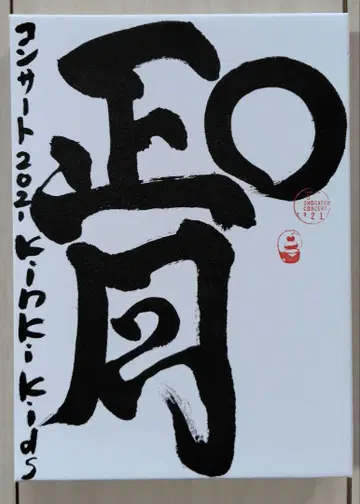 O正月
コンサート2021 KinKi Kids
O
SHOGATSU
CONCERT
2021